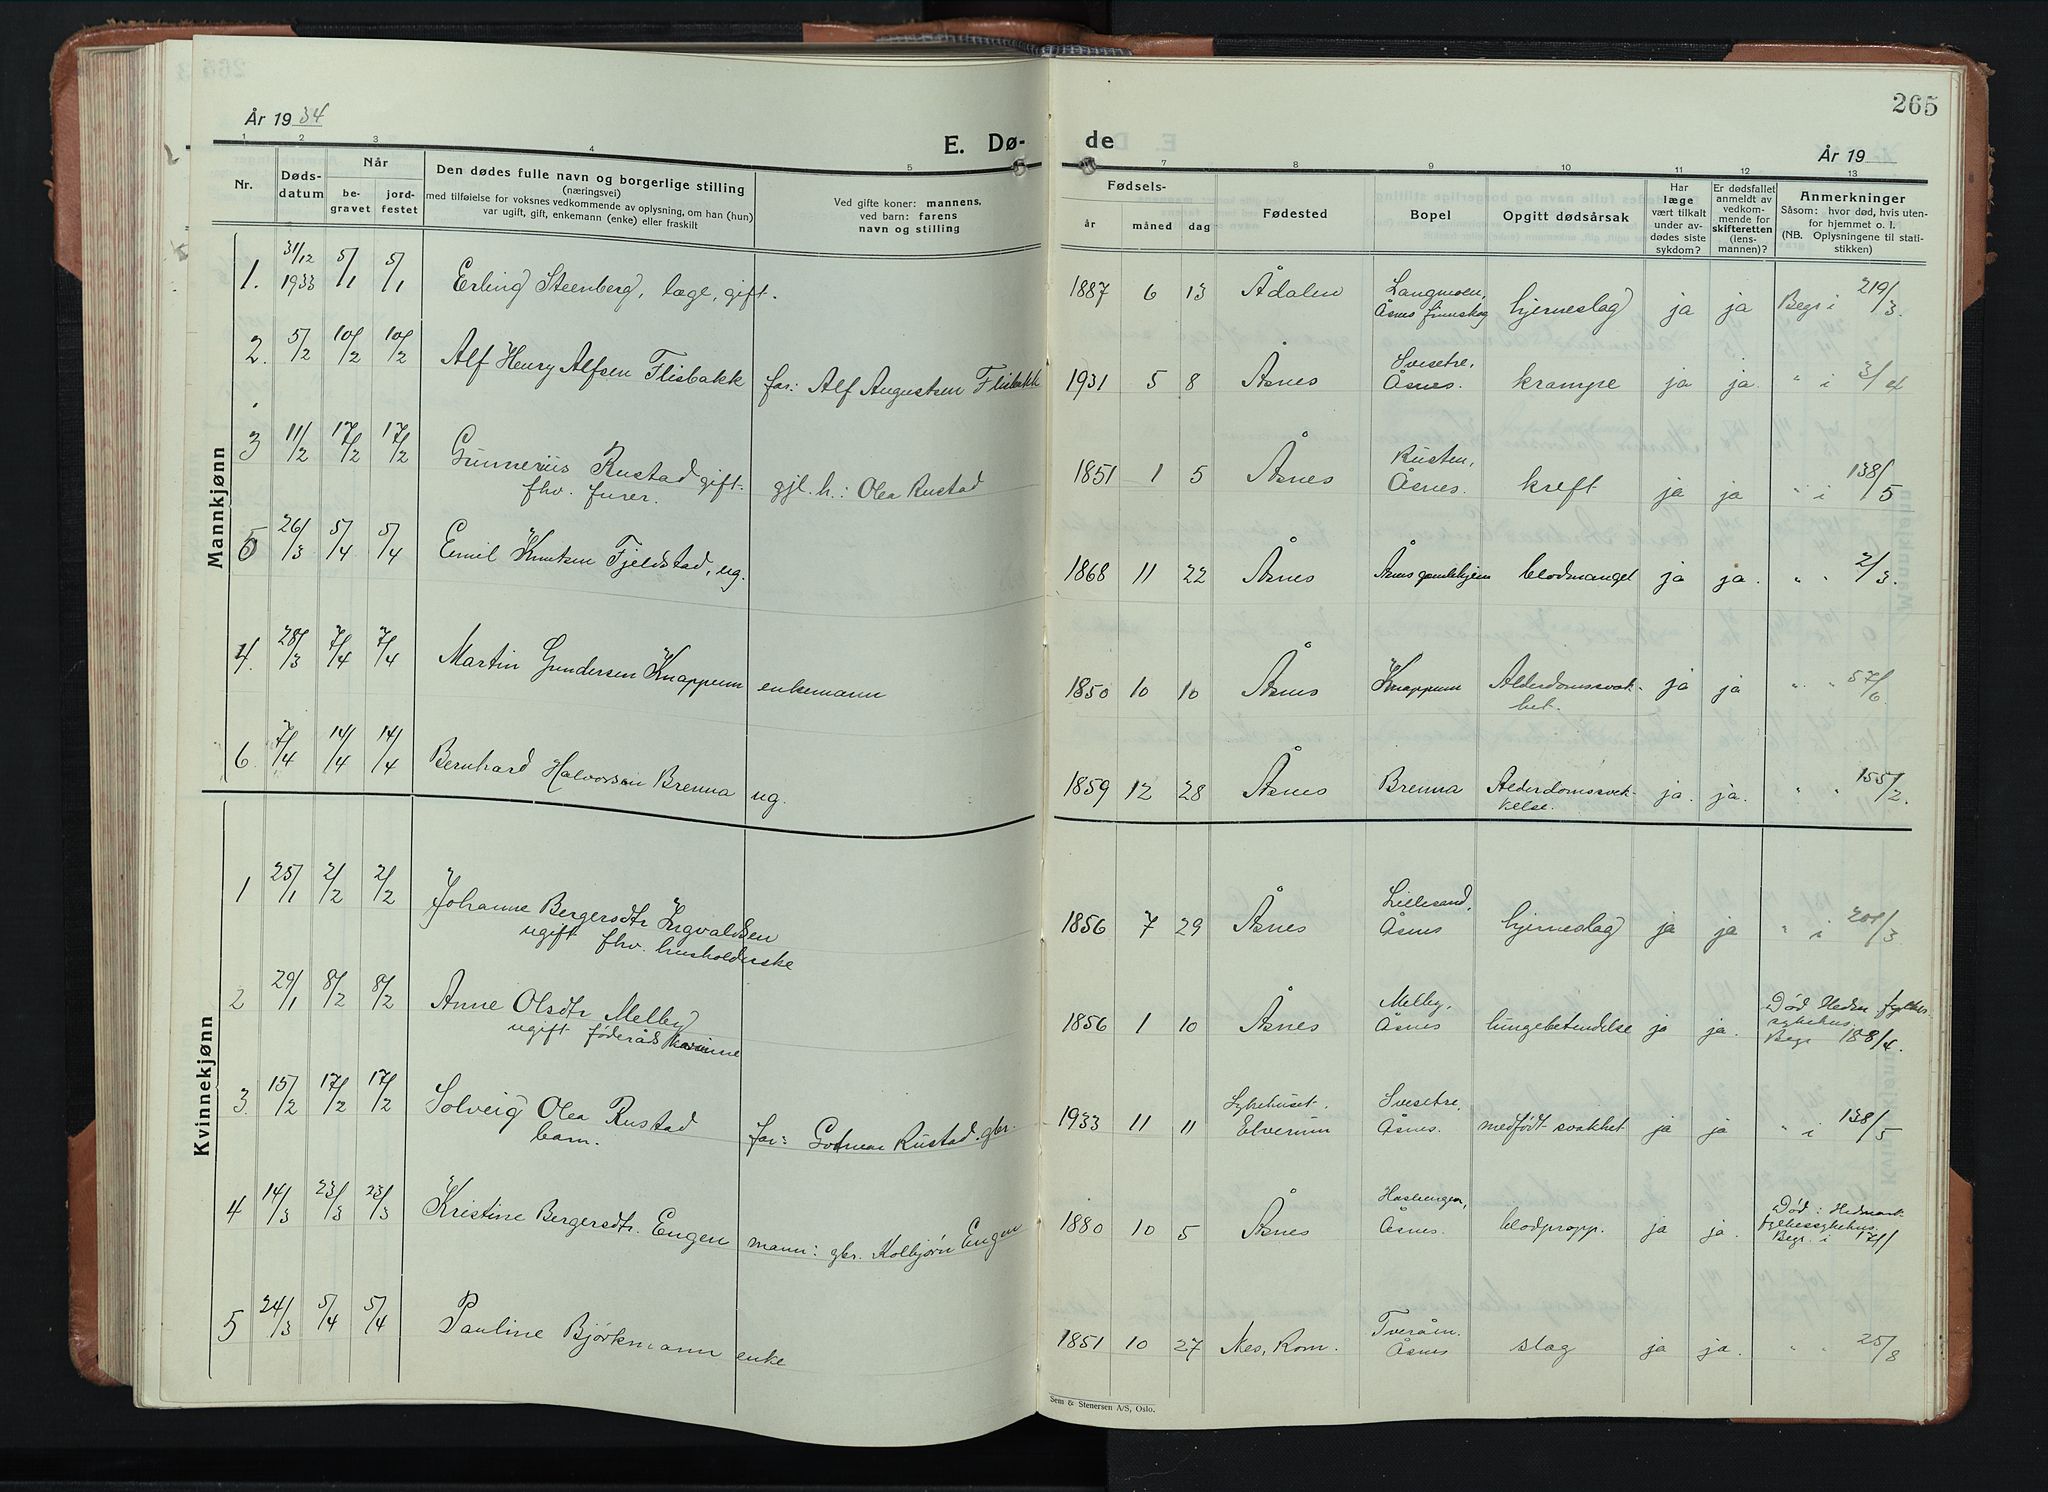 265
År 19 34
E. Dø-
de
År 19
1 2 3 4 5 7 8 9 10 11 12 13
Nr.
Døds-
datum
Når
be-
gravet
jord-
festet
Den dødes fulle navn og borgerlige stilling
(næringsvei)
med tilføielse for voksnes vedkommende av oplysning, om han (hun)
var ugift, gift, enkemann (enke) eller fraskilt
Ved gifte koner: mannens,
ved barn: farens
navn og stilling
Fødsels-
år måned dag
Fødested
Bopel
Opgitt dødsårsak
Har
læge
vært tilkalt
under av-
dødes siste
sykdom?
Er dødsfallet
anmeldt av
vedkom-
mende for
skifteretten
(lens-
mannen)?
Anmerkninger
Såsom: hvor død, hvis uten-
for hjemmet o. l.
(NB. Oplysningene til stati-
stikken)
Mannkjønn
1. 31/12 1933 5/1 5/1 Erling Steenberg, læge, gift. 1887 6 13 Ådalen Langmoen, Åsnes finnskog hjerneslag ja ja Begr i 219/3.
2. 5/2 10/2 10/2 Alf Henry Alfsen Flisbakk far: Alf Augustsen Flisbakk 1931 5 8 Åsnes Svesetre, Åsnes. krampe ja ja. " i 3/4
3 11/2 17/2 17/2 Gunnerius Rustad gift. fhv. furer. gjl. h.: Olea Rustad 1851 1 5 Åsnes Rusten, Åsnes. kreft ja ja " i 138/5
5 26/3 5/4 5/4 Emil Knutsen Fjeldstad, ug. 1868 11 22 Åsnes Åsnes gamlehjem blodmangel ja ja. " " 2/3.
4. 28/3 7/4 7/4 Martin Gundersen Knappum enkemann 1850 10 10 Åsnes Knappum Alderdomssvak-het. ja ja " " 57/6
6. 7/4 14/4 14/4 Bernhard Halvorsen Brenna ug. 1859 12 28 Åsnes Brenna Alderdomssvek-kelse. ja. ja. " " 155/2.
Kvinnekjønn
1 25/1 2/2 2/2 Johanne Bergersdtr Ingvaldsen ugift fhv. husholderske 1856 7 29 Åsnes Lillesand, Åsnes hjerneslag ja ja " i 201/3.
2 29/1 8/2 8/2 Anne Olsdtr Melby ugift føderådskvinne 1856 1 10 Åsnes Melby, Åsnes lungebetendelse ja ja. Død Hedm. fylkes-sykehus. Begr 188/4.
3 15/2 17/2 17/2 Solveig Olea Rustad barn. far: Gotmar Rustad. gbr. 1933 11 11 Sykehuset. Elverum Svesetre, Åsnes. medfødt svakhet ja ja " i 138/5
4 14/3 23/3 23/3 Kristine Bergersdtr. Engen mann: gbr. Kolbjørn Engen 1880 10 5 Åsnes Åsnes. blodpropp. ja ja. Død i Hedmark fylkessykehus. Begr. i 17/1
5 24/3 5/4 5/4 Pauline Bjørkmann enke 1851 10 27 Nes, Rom. Tveråen. Åsnes slag ja ja. " " 25/8
Sem & Stenersen A/S, Oslo.